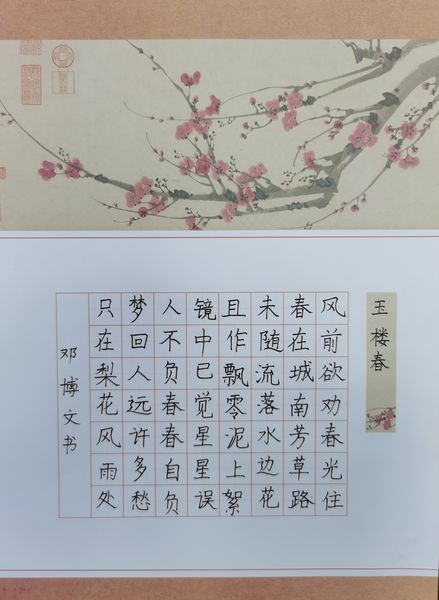 玉楼春
风前欲劝春光住
春在城南芳草路
未随流落水边花
且作飘零泥上絮
镜中已觉星星误
人不负春春自负
梦回人远许多愁
只在梨花风雨处
邓博文书